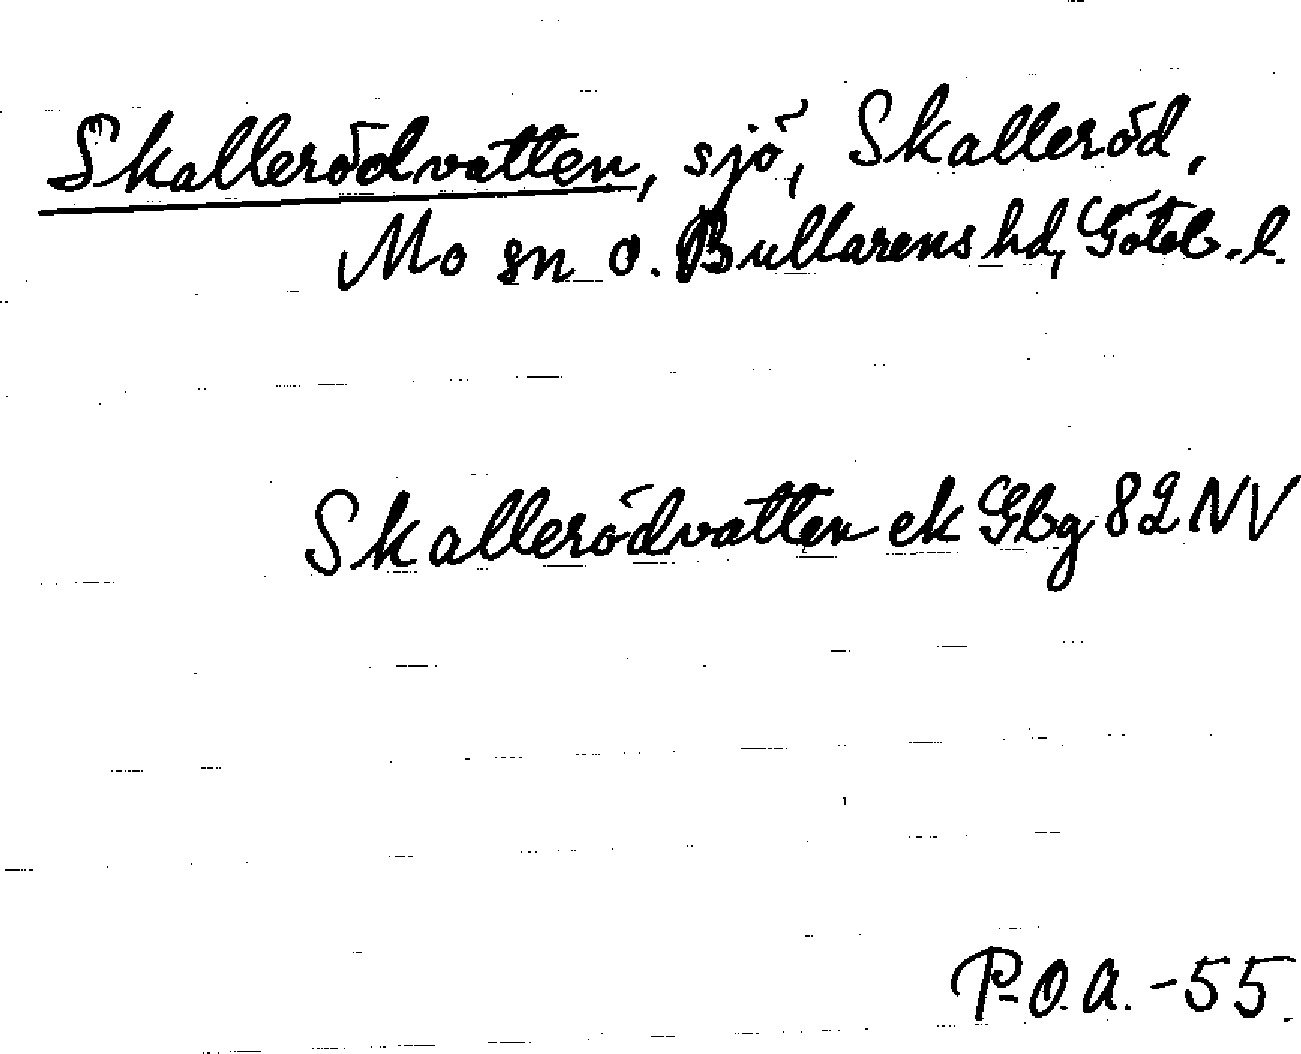 Skallerödvatten, sjö, Skalleröd,
Mo sn Ö. Bullarens hd, Göteb. l.
Skallerödvatten ek Gbg 82 NV
P-O.A. -55